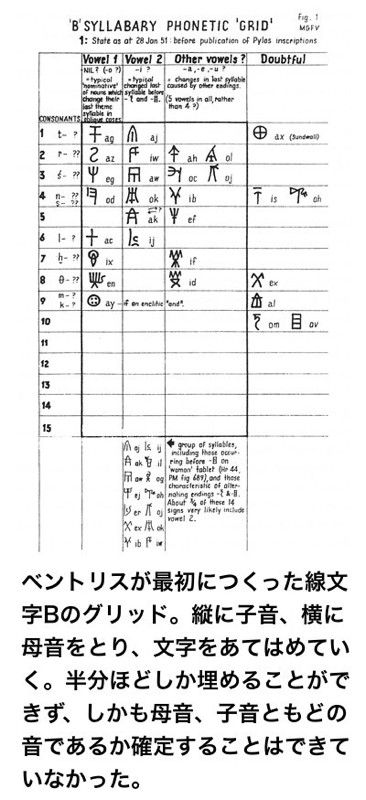 Fig. 1
MGFV
'B' SYLLABARY PHONETIC 'GRID'
1: State as at 28 Jan 51: before publication of Pylos inscriptions
CONSONANTS
Vowel 1
NIL? (-o?)
= typical "nominative" of nouns which change their last syllable in oblique cases
Vowel 2
-i?
= typical changed last syllable before
Other vowels?
-a,-e,-u?
= changes in last syllable caused by other endings.
(5 vowels in all, rather than 4?)
Doubtful
1 t- ? ag aj ax (Sundwall)
2 r- ?? az iw ah ol
3 ś- ?? eg aw oc oj
4 n- ?? s- ?? od ok ib is oh
5 ak ef
6 l- ? ac ij
7 h- ?? ix if
8 θ- ?? en id ex
9 m- ? k- ? ay - if an enclitic "and". al
10 om av
11
12
13
14
15
aj ij
ak il
aw og
ej oh
er oj
ex ok
ib iw
group of syllables, including those occurring before -B on 'woman' tablet (Hr 44, PM fig 689), and those characteristic of alternating endings
About ¾ of these 14 signs very likely include vowel 2.
ベントリスが最初につくった線文
字Bのグリッド。縦に子音、横に
母音をとり、文字をあてはめてい
く。半分ほどしか埋めることがで
きず、しかも母音、子音ともどの
音であるか確定することはできて
いなかった。